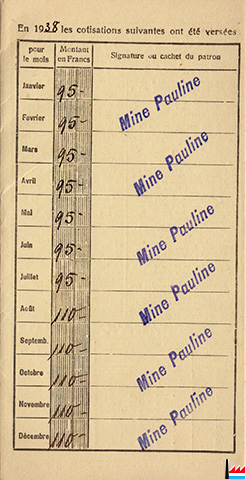 En 1938 les cotisations suivantes ont été versées
pour le mois
Montant en Francs
Signature ou cachet du patron
Janvier 95-
Fevrier 95- Mine Pauline
Mars 95-
Avril 95- Mine Pauline
Mai 95-
Juin 95- Mine Pauline
Juillet 95-
Août 110- Mine Pauline
Septemb. 110-
Octobre 110- Mine Pauline
Novembre 110-
Décembre 110- Mine Pauline